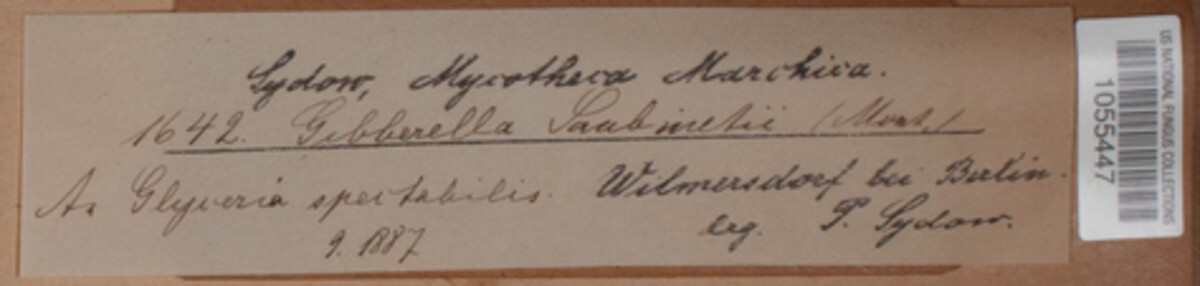 Sydow, Mycotheca Marchica.
1642. Gibberella Saubinetii (Mont.)
An Glyceria spectabilis. Wilmersdorf bei Berlin.
9. 1887 leg. P. Sydow.
US NATIONAL FUNGUS COLLECTIONS
1055447